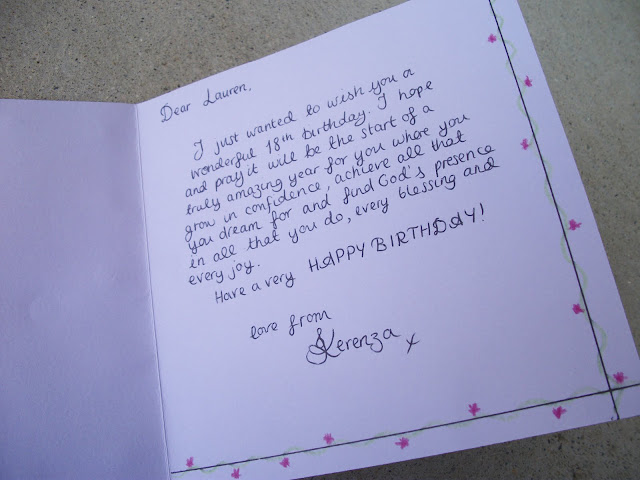 Dear Lauren,
I just wanted to wish you a
wonderful 18th birthday. I hope
and pray it will be the start of a
truly amazing year for you where you
grow in confidence, achieve all that
you dream for and find God's presence
in all that you do, every blessing and
every joy.
Have a very HAPPY BIRTHDAY!
love from
Kerenza x